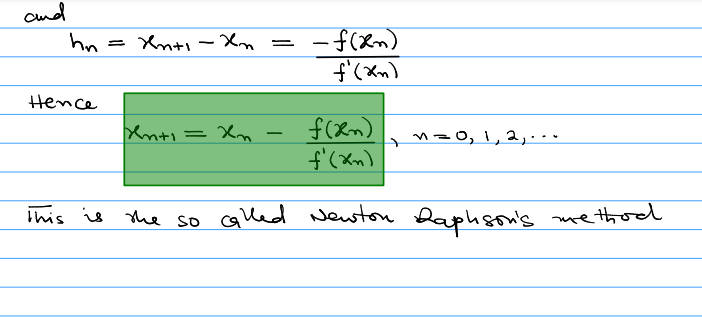 and
hₙ = xₙ₊₁ − xₙ = −f(xₙ) / f'(xₙ)
Hence
xₙ₊₁ = xₙ − f(xₙ) / f'(xₙ) , n = 0, 1, 2, ...
This is the so called Newton Raphson's method